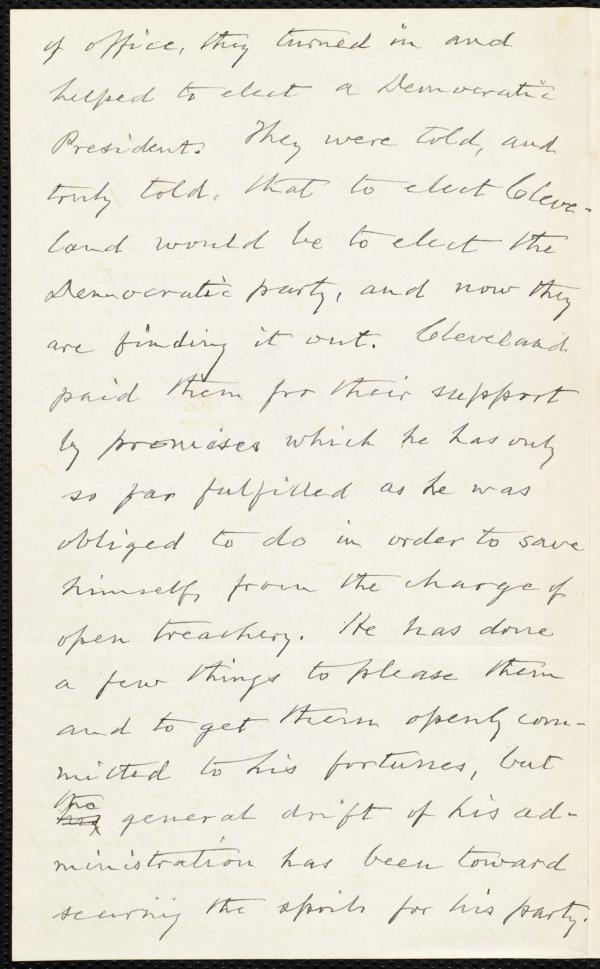 of office, they turned in and
helped to elect a Democratic
President. They were told, and
truly told, that to elect Cleve-
land would be to elect the
Democratic party, and now they
are finding it out. Cleveland
paid them for their support
by promises which he has only
so far fulfilled as he was
obliged to do in order to save
himself, from the charge of
open treachery. He has done
a few things to please them
and to get them openly com-
mitted to his fortunes, but
the
general drift of his ad-
ministration has been toward
securing the spoils for his party.